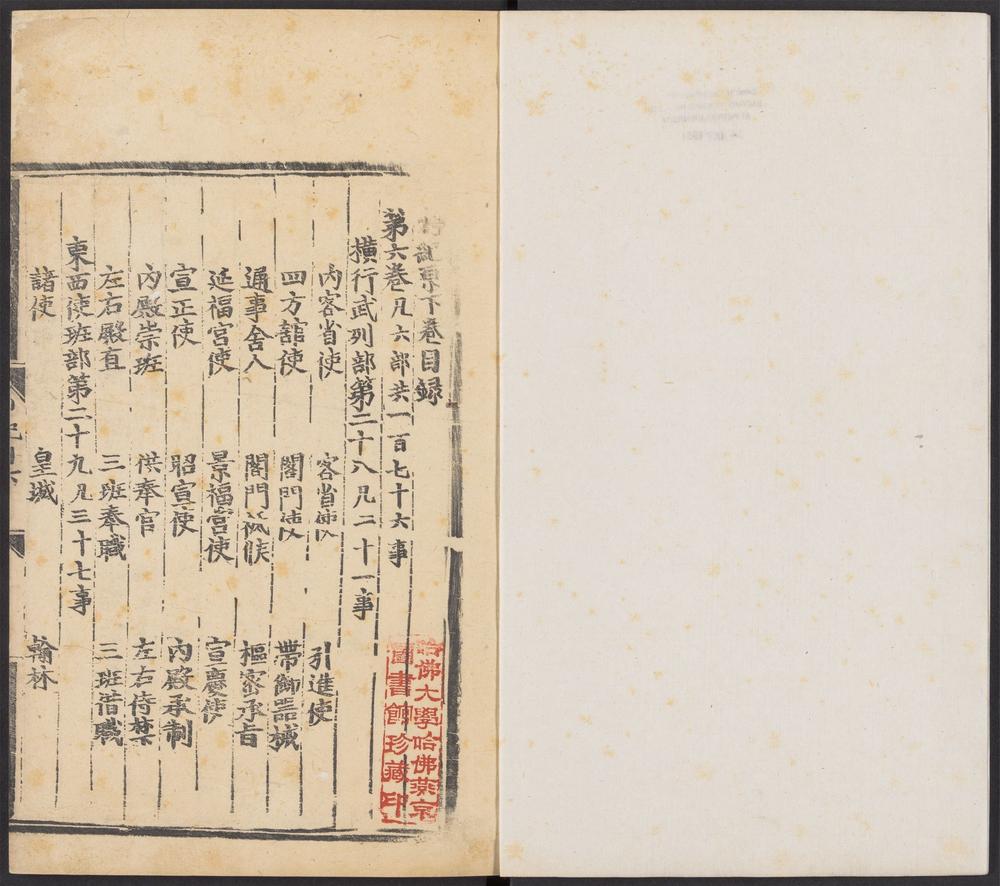 紀原下卷目録
第六卷凡六部共一百七十六事
橫行武列部第二十八凡二十一事
內客省使 客省使 引進使
四方館使 閣門使 帶飾器械
通事舍人 閣門祇候 樞密承旨
延福宮使 景福宮使 宣慶使
宣正使 昭宣使 內殿承制
內殿崇班 供奉官 左右侍禁
左右殿直 三班奉職 三班借職
東西使班部第二十九凡三十七事
諸使 皇城 翰林
哈佛大學哈佛燕京
圖書館珍藏印